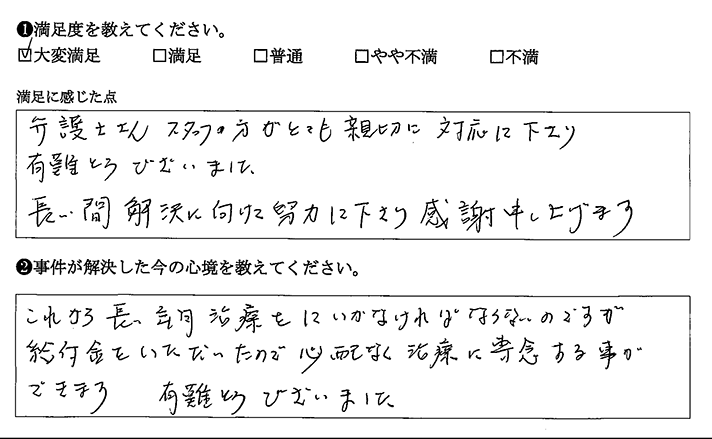 ❶満足度を教えてください。
☑大変満足 □満足 □普通 □やや不満 □不満
満足に感じた点
弁護士さん スタッフの方がとても親切に対応に下さり
有難とうございました
長い間 解決に向けて努力に下さり感謝申し上げます
❷事件が解決した今の心境を教えてください。
これから長い 治療をしにいかなければならないのですが
給付金をいただいたので心配なく治療に専念する事が
できます 有難とうございました